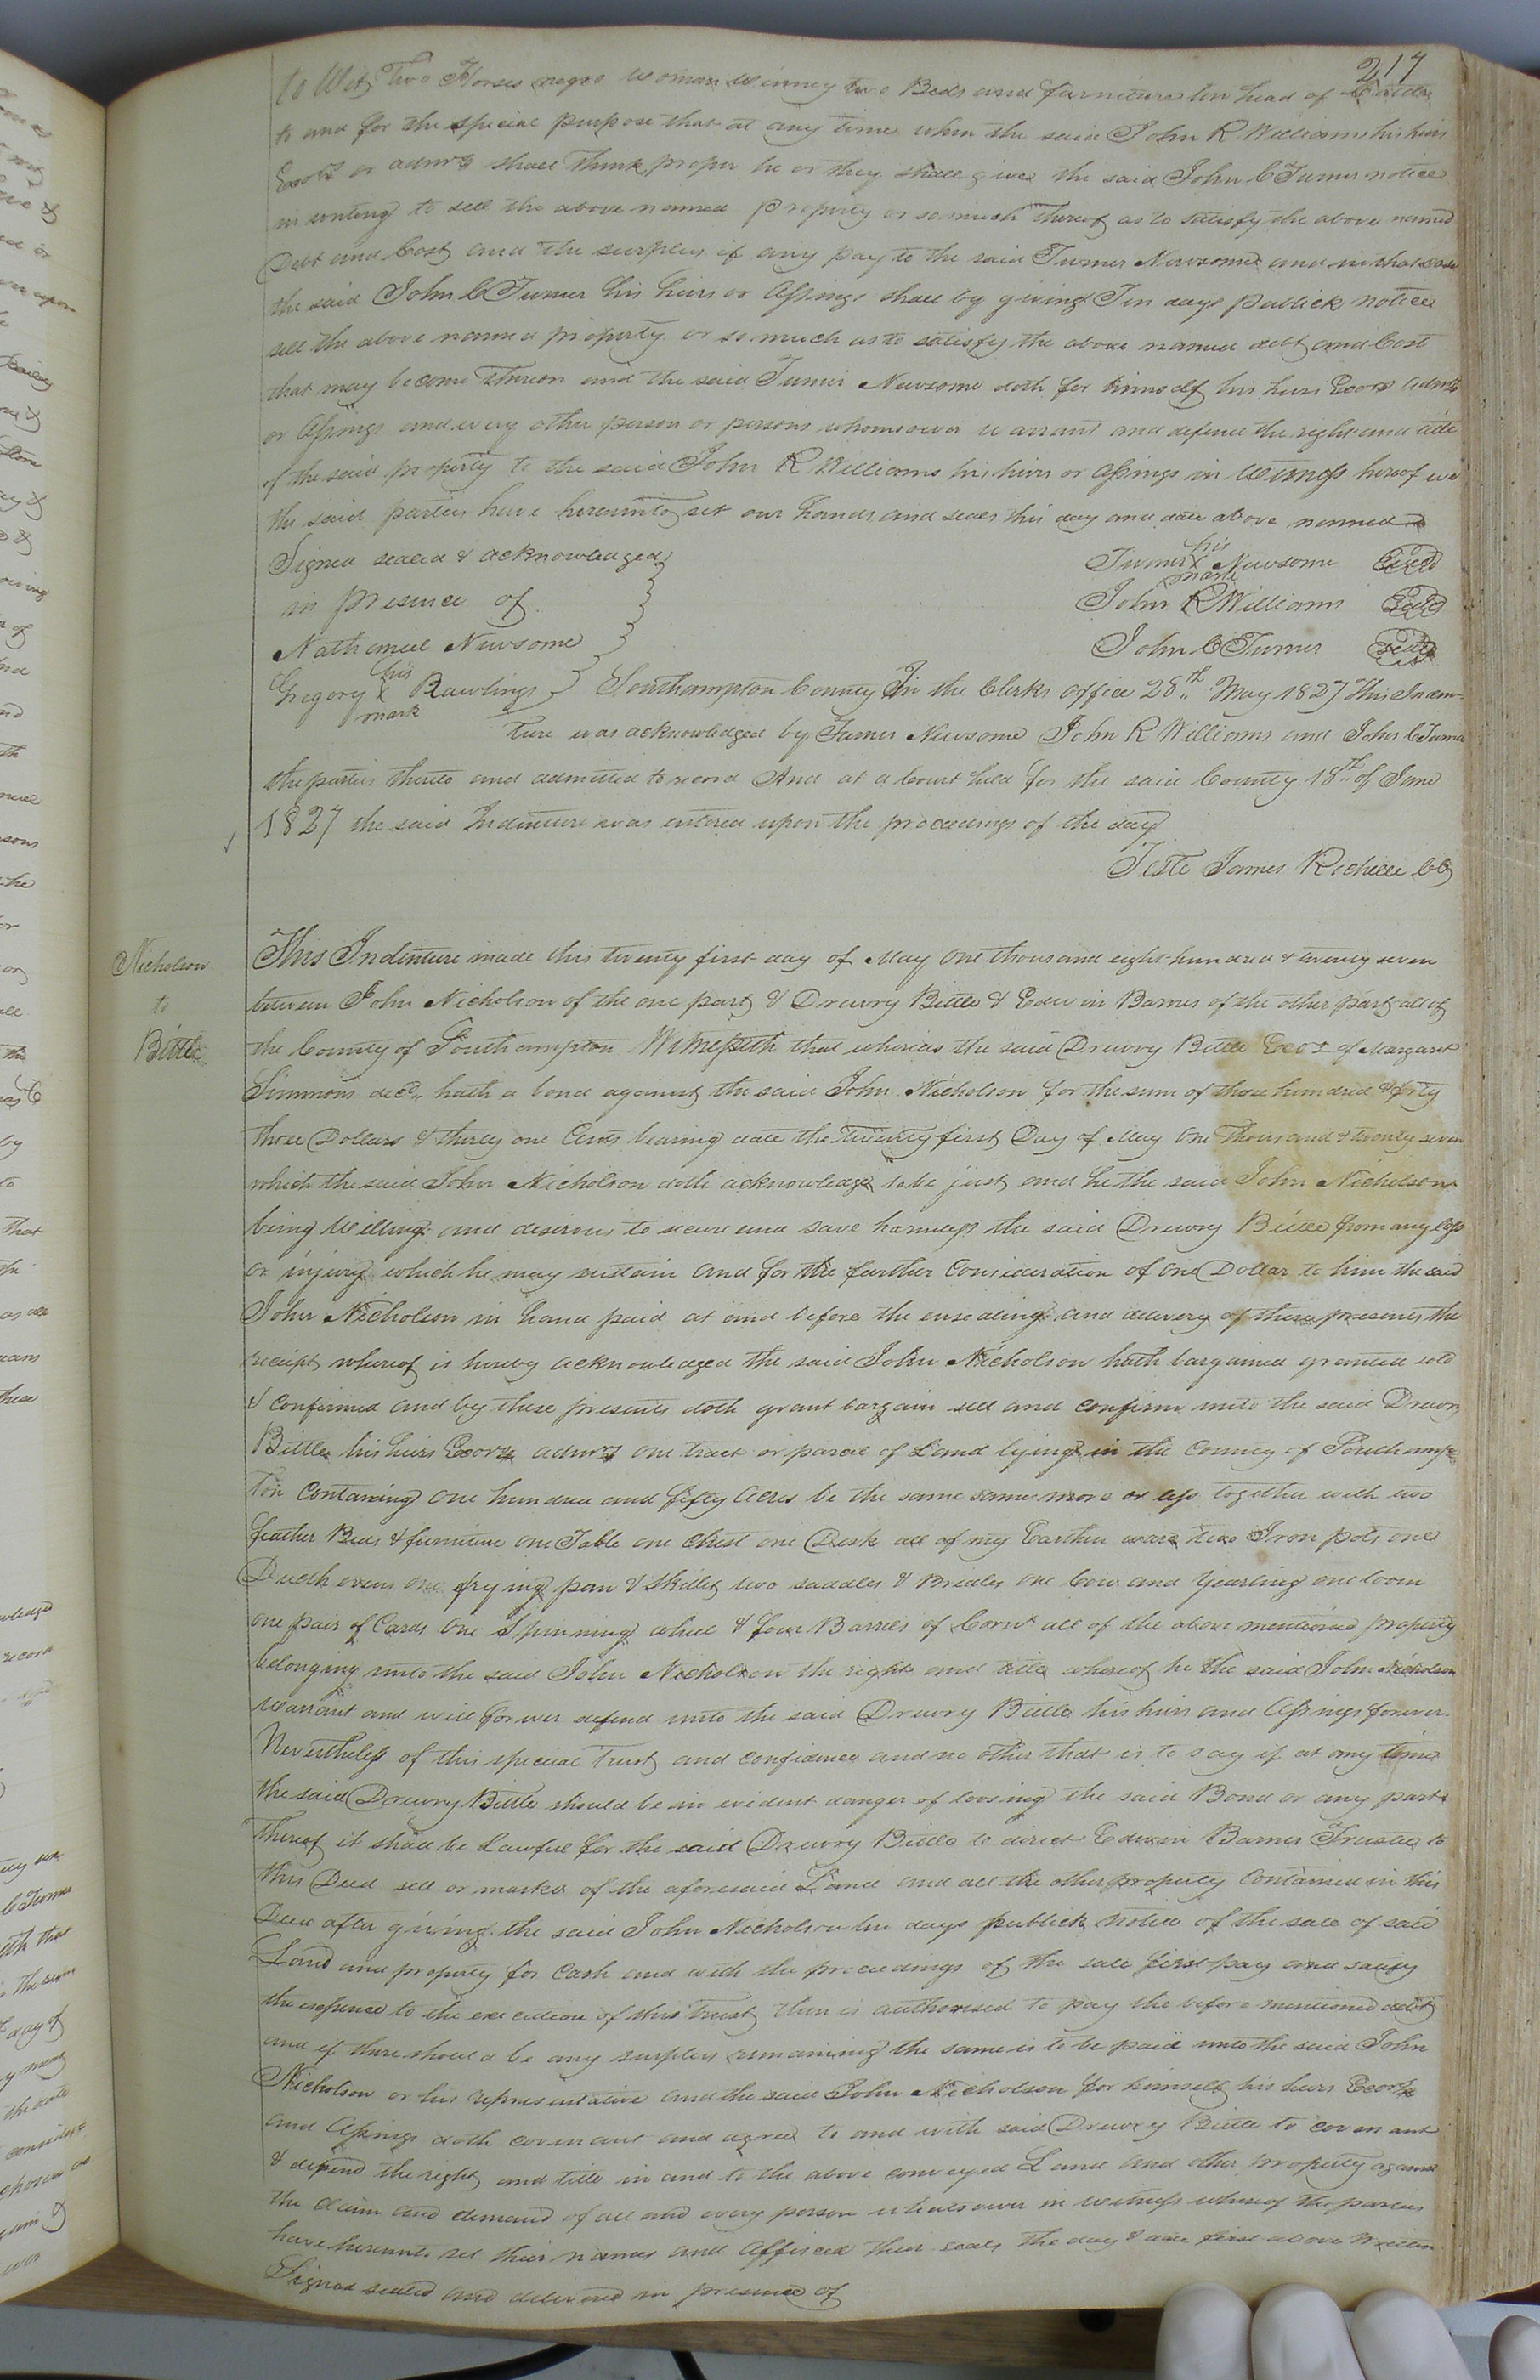 217
to Wit, Two Horses negro woman Winney two Beds and furniture ten head of Cattle
to and for the special purpose that at any time when the said John R Williams his heirs
Exors or admrs shall think proper he or they shall give the said John C Turner notice
in writing to sell the above named property or so much thereof as to satisfy the above named
Debt and Cost and the surplus if any pay to the said Turner Newsome and in that case
the said John C Turner his heirs or Assings shall by giving Ten days publick notice
sell the above named property or so much as to satisfy the above named debt and Cost
that may become thereon and the said Turner Newsome doth for himself his heirs Exors admrs
or Assings and every other person or persons whomsoever warrant and defend the right and title
of the said property to the said John R Williams his heirs or Assings in Witness hereof we
the said parties have hereunto set our hands and seals this day and date above named
Signed sealed & acknowledged
in presence of
Nathaniel Newsome
Gregory his X mark Rawlings
Turner his X mark Newsome Seal
John R Williams Seal
John C Turner Seal
Southampton County In the Clerks office 28th May 1827 This Inden-
ture was acknowledged by Turner Newsome John R Williams and John C Turner
the parties thereto and admitted to record And at a Court held for the said County 18th of June
1827 the said Indenture was entered upon the proceedings of the day
Teste James Rochelle CC
Nicholson
to
Bittle
This Indenture made this twenty first day of May one thousand eight hundred & twenty seven
between John Nicholson of the one part & Drewry Bittle & Edwin Barnes of the other part all of
the County of Southampton Witnesseth that whereas the said Drewry Bittle Exor of Margaret
Simmons decd. hath a bond against the said John Nicholson for the sum of three hundred & forty
three Dollars & thirty one Cents bearing date the twenty first Day of May One Thousand & twenty seven
which the said John Nicholson doth acknowledge to be just and he the said John Nicholson
being Willing and desirous to secure and save harmless the said Drewry Bittle from any loss
or injury which he may sustain and for the further Consideration of one Dollar to him the said
John Nicholson in hand paid at and before the ensealing and delivery of these presents the
receipt whereof is hereby acknowledged the said John Nicholson hath bargained granted sold
& confirmed and by these presents doth grant bargain sell and confirm unto the said Drewry
Bittle his heirs Exors admrs one tract or parcel of Land lying in the County of Southamp=
ton Containing one hundred and fifty Acres be the same same more or less together with two
feather Beds & furniture one Table one Chest one Desk all of my Earthen ware two Iron pots one
Dueth oven one frying pan & skillet two saddles & Bridles one Cow and Yearling one loom
one pair of Cards One Spinning wheel & four Barrels of Corn all of the above mentioned property
belonging unto the said John Nicholson the right and title whereof he the said John Nicholson
Warrant and will forever defend unto the said Drewry Bittle his heirs and Assings forever.
Nevertheless of this special Trust and confidence and no other that is to say if at any time
the said Drewry Bittle should be in evident danger of loosing the said Bond or any part
thereof it shall be Lawful for the said Drewry Bittle to direct Edwin Barnes Trustee to
this Deed sell or market of the aforesaid Land and all the other property Contained in this
Deed after giving the said John Nicholson ten days publick notice of the sale of said
Land and property for Cash and with the proceedings of the sale first pay and satisfy
the expence to the execution of this Trust then is authorised to pay the before mentioned debt
and if there should be any surplus remaining the same is to be paid unto the said John
Nicholson or his representative and the said John Nicholson for himself his heirs Exors
and Assings doth covenant and agree to and with said Drewry Bittle to covenant
& defend the right and title in and to the above conveyed Land and other property against
the claim and demand of all and every person whatsoever in witness whereof the parties
have hereunto set their names and Affixed their seals the day & date first above Written
Signed sealed and delivered in presence of